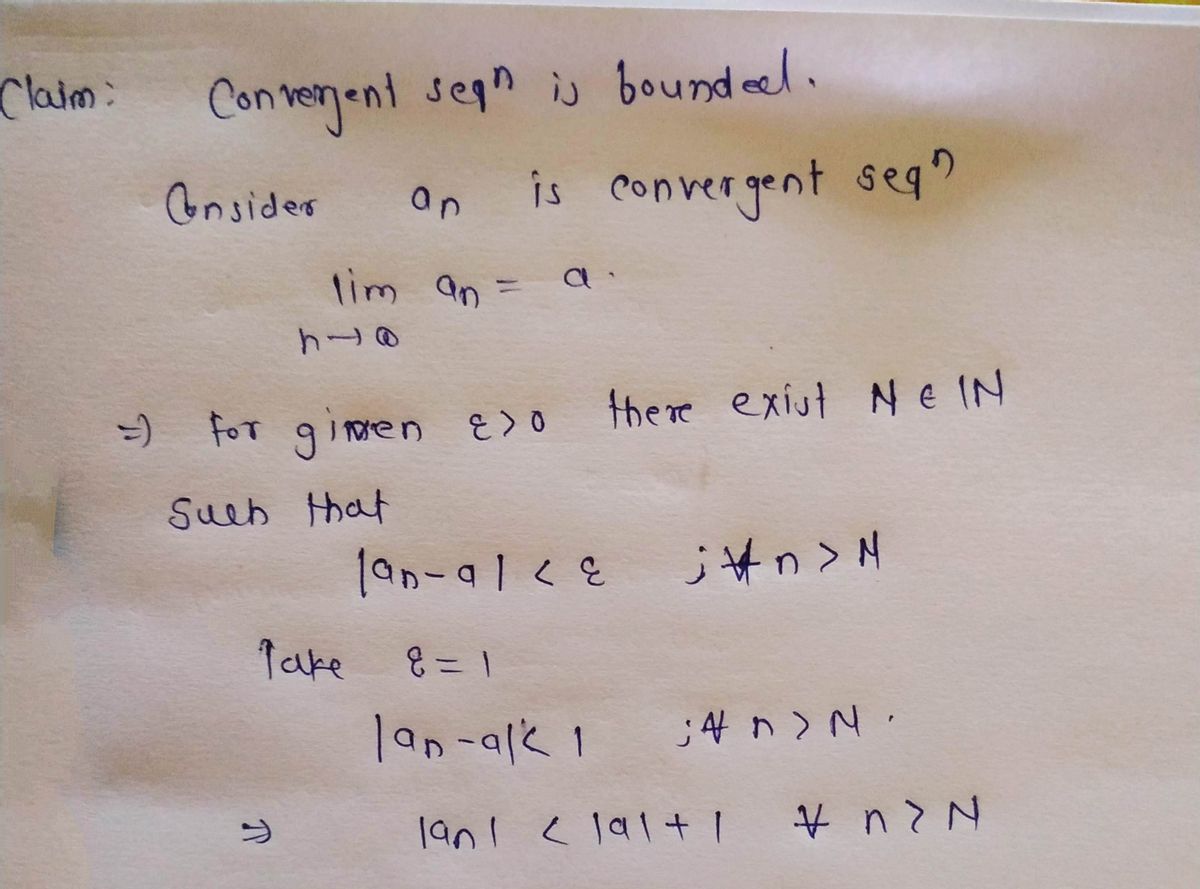 Claim: Convergent seqⁿ is bounded.
Consider an is convergent seqⁿ
lim an = a.
n→∞
⇒ for given ε>0 there exist N ∈ ℕ
Such that
|an-a| < ε ; ∀ n > N
Take ε = 1
|an-a| < 1 ; ∀ n > N.
⇒ |an| < |a| + 1 ∀ n > N